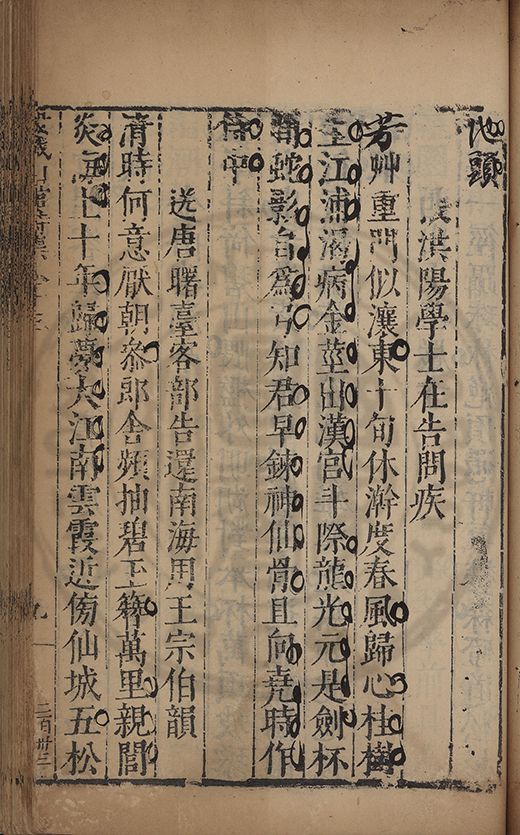 池頭
張洪陽學士在告問疾
芳艸重門似瀼東十旬休澣度春風歸心桂樹
生江浦渴病金莖出漢宮斗際龍光元是劍杯
蛇影台爲弓知君早鍊神仙骨且向堯時作
侍中
送唐曙臺客部告還南海用王宗伯韻
清時何意厭朝參郎舍頻抽碧玉簪萬里親闈
炎海上十年歸夢大江南雲霞近傍仙城五松
九
二百卅三